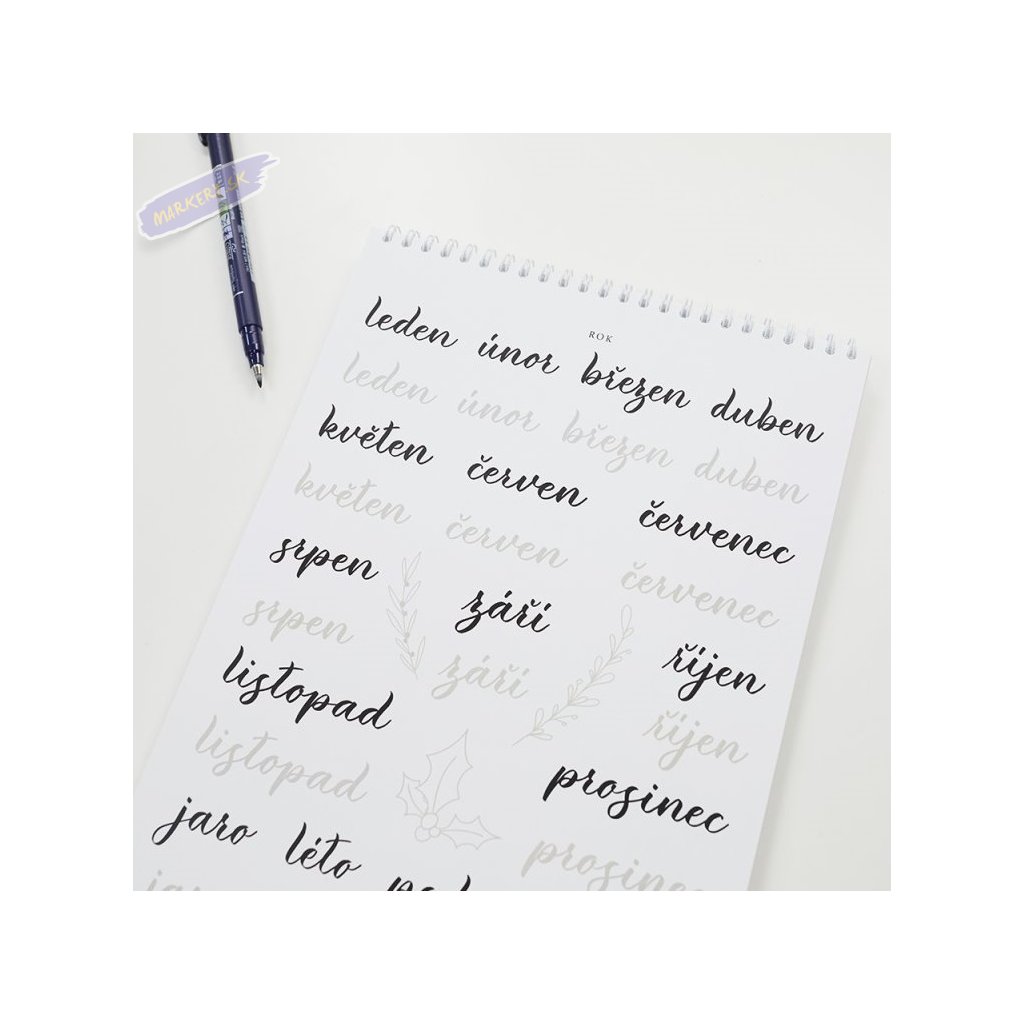 MARKERY.SK
ROK
leden únor březen duben
leden únor březen duben
květen červen červenec
květen červen červenec
srpen září říjen
srpen září říjen
listopad prosinec
listopad prosinec
jaro léto